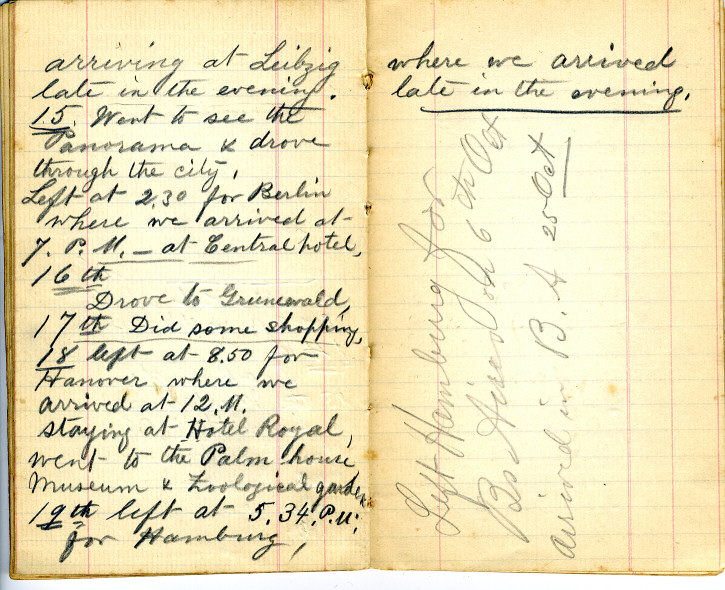 arriving at Leibzig
late in the evening.
15. Went to see the
Panorama & drove
through the city,
Left at 2,30 for Berlin
where we arrived at
7. P. M. – at Central hotel,
16th
Drove to Grunewald,
17th Did some shopping,
18 left at 8.50 for
Hanover where we
arrived at 12, M.
staying at Hotel Royal,
went to the Palm house
Museum & Zoological garden
19th left at 5.34, P. M.,
for Hamburg,
where we arrived
late in the evening.
Left Hamburg for
Bs Aires on 6th Oct
arrived in B. A 25 Oct